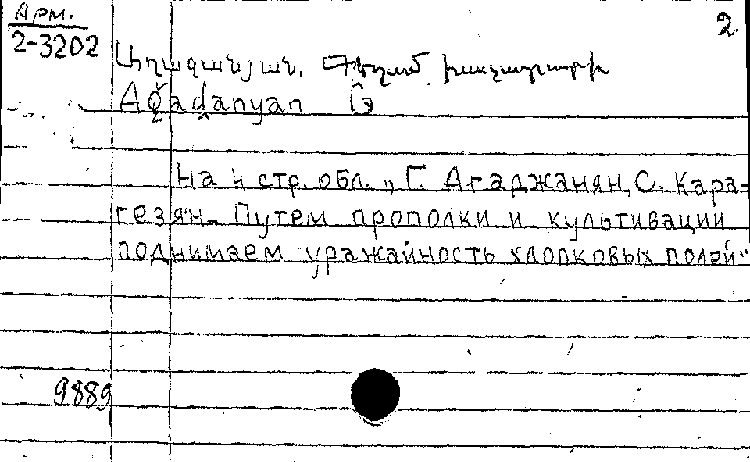 Арм.
2
2-3202
Ağadanyan G
На 4 стр. обл. „Г. Агаджанян, С. Кара-
гезян. Путем прополки и культивации
поднимаем урожайность хлопковых полей"
9889